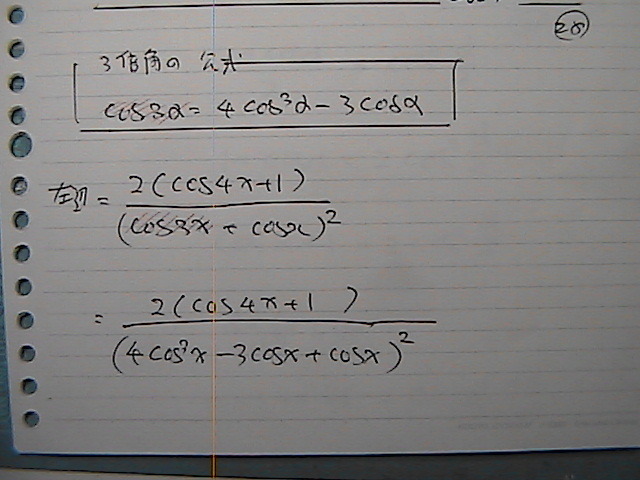 3倍角の公式
cos3α = 4cos³α - 3cosα
左辺 = 2(cos4x+1) / (cos3x + cosx)²
= 2(cos4x+1) / (4cos³x - 3cosx + cosx)²